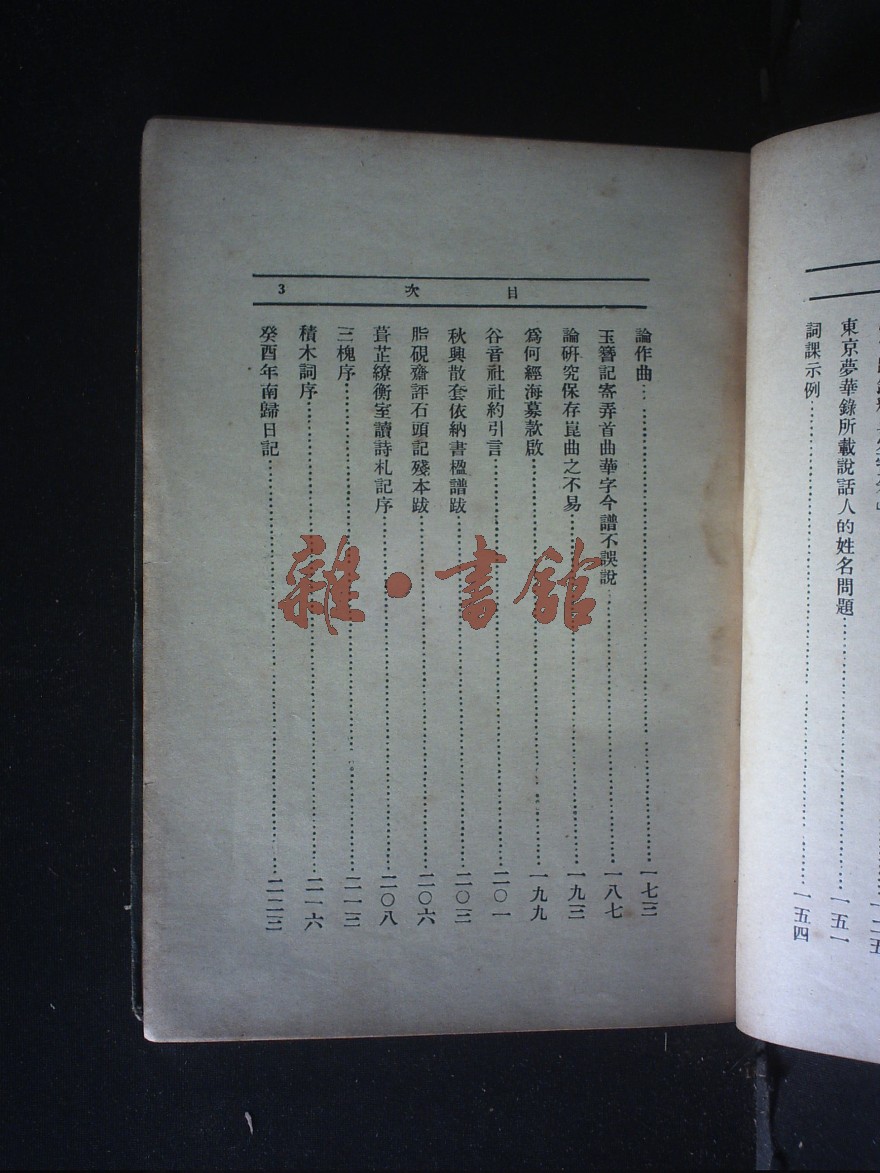 東京夢華錄所載說話人的姓名問題……一五一
詞課示例……一五四
目次 3
論作曲……一七三
玉簪記寄弄首曲華字今譜不誤說……一八七
論研究保存崑曲之不易……一九三
爲何經海募款啟……一九九
谷音社社約引言……二〇一
秋興散套依納書楹譜跋……二〇三
脂硯齋評石頭記殘本跋……二〇六
葺芷繚衡室讀詩札記序……二〇八
三槐序……二一三
積木詞序……二一六
癸酉年南歸日記……二二三
雜·書館